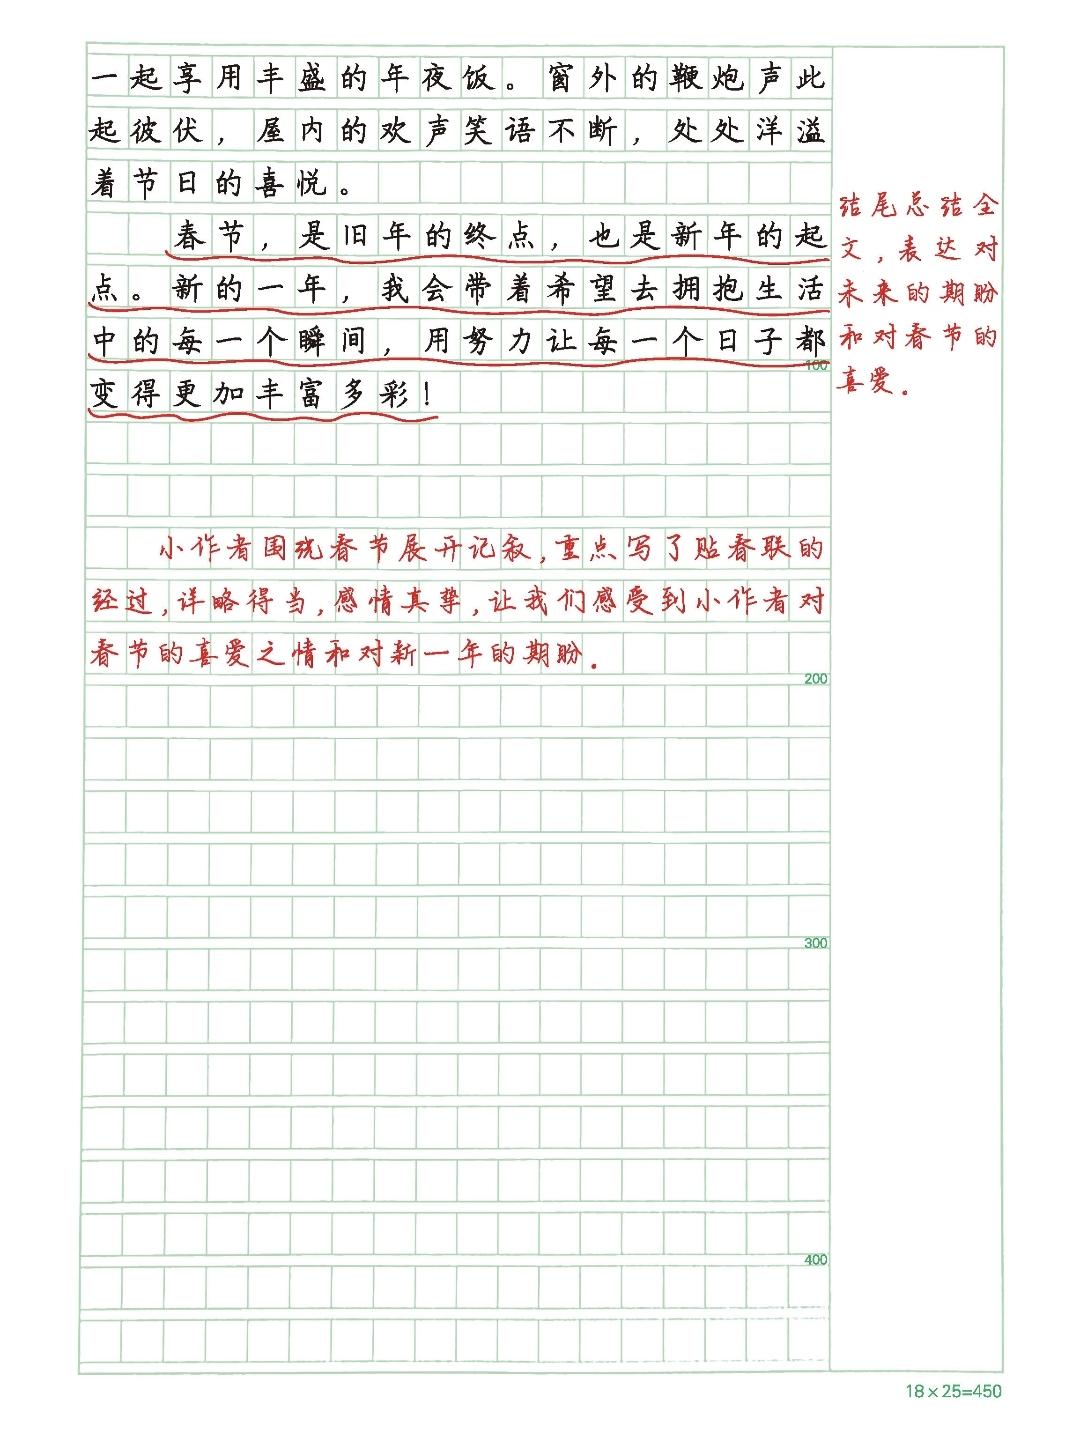 一起享用丰盛的年夜饭。窗外的鞭炮声此
起彼伏，屋内的欢声笑语不断，处处洋溢
着节日的喜悦。
春节，是旧年的终点，也是新年的起
点。新的一年，我会带着希望去拥抱生活
中的每一个瞬间，用努力让每一个日子都
100
变得更加丰富多彩！
结尾总结全
文，表达对
未来的期盼
和对春节的
喜爱.
小作者围绕春节展开记叙,重点写了贴春联的
经过,详略得当,感情真挚,让我们感受到小作者对
春节的喜爱之情和对新一年的期盼.
200
300
400
18×25=450